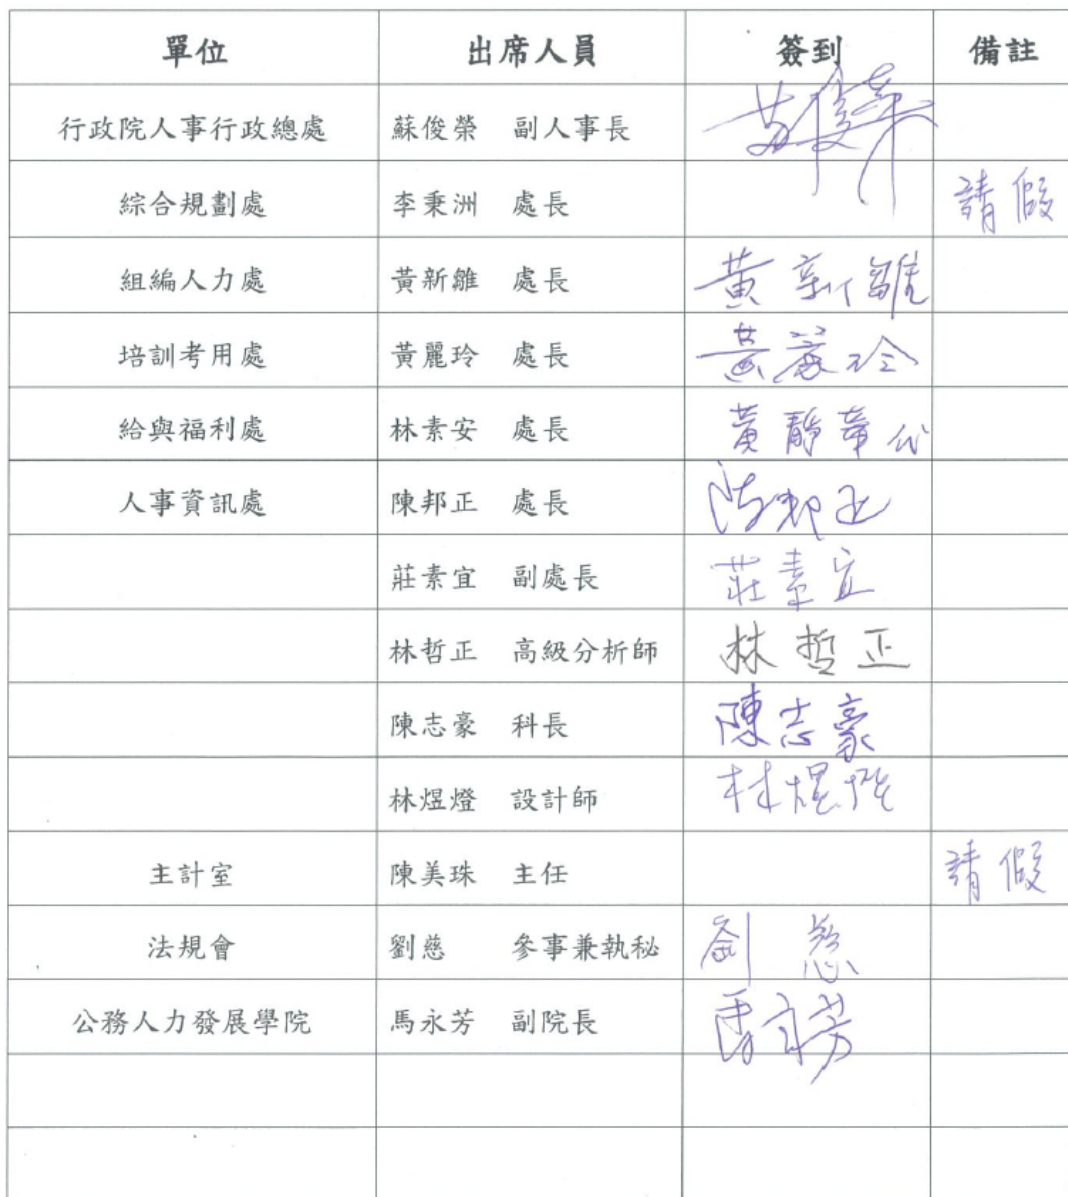 單位 出席人員 簽到 備註
行政院人事行政總處 蘇俊榮 副人事長 蘇俊榮
綜合規劃處 李秉洲 處長 請假
組編人力處 黃新雛 處長 黃新雛
培訓考用處 黃麗玲 處長 黃麗玲
給與福利處 林素安 處長 黃靜華代
人事資訊處 陳邦正 處長 陳邦正
莊素宜 副處長 莊素宜
林哲正 高級分析師 林哲正
陳志豪 科長 陳志豪
林煜燈 設計師 林煜燈
主計室 陳美珠 主任 請假
法規會 劉慈 參事兼執秘 劉慈
公務人力發展學院 馬永芳 副院長 馬永芳